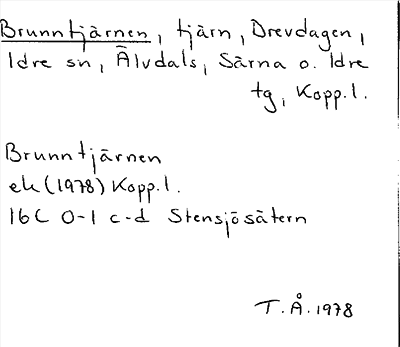 Brunntjärnen, tjärn, Drevdagen,
Idre sn, Älvdals, Särna o. Idre
tg, Kopp.l.
Brunntjärnen
ek (1978) Kopp.l.
16C 0-1 c-d Stensjösätern
T.Å. 1978